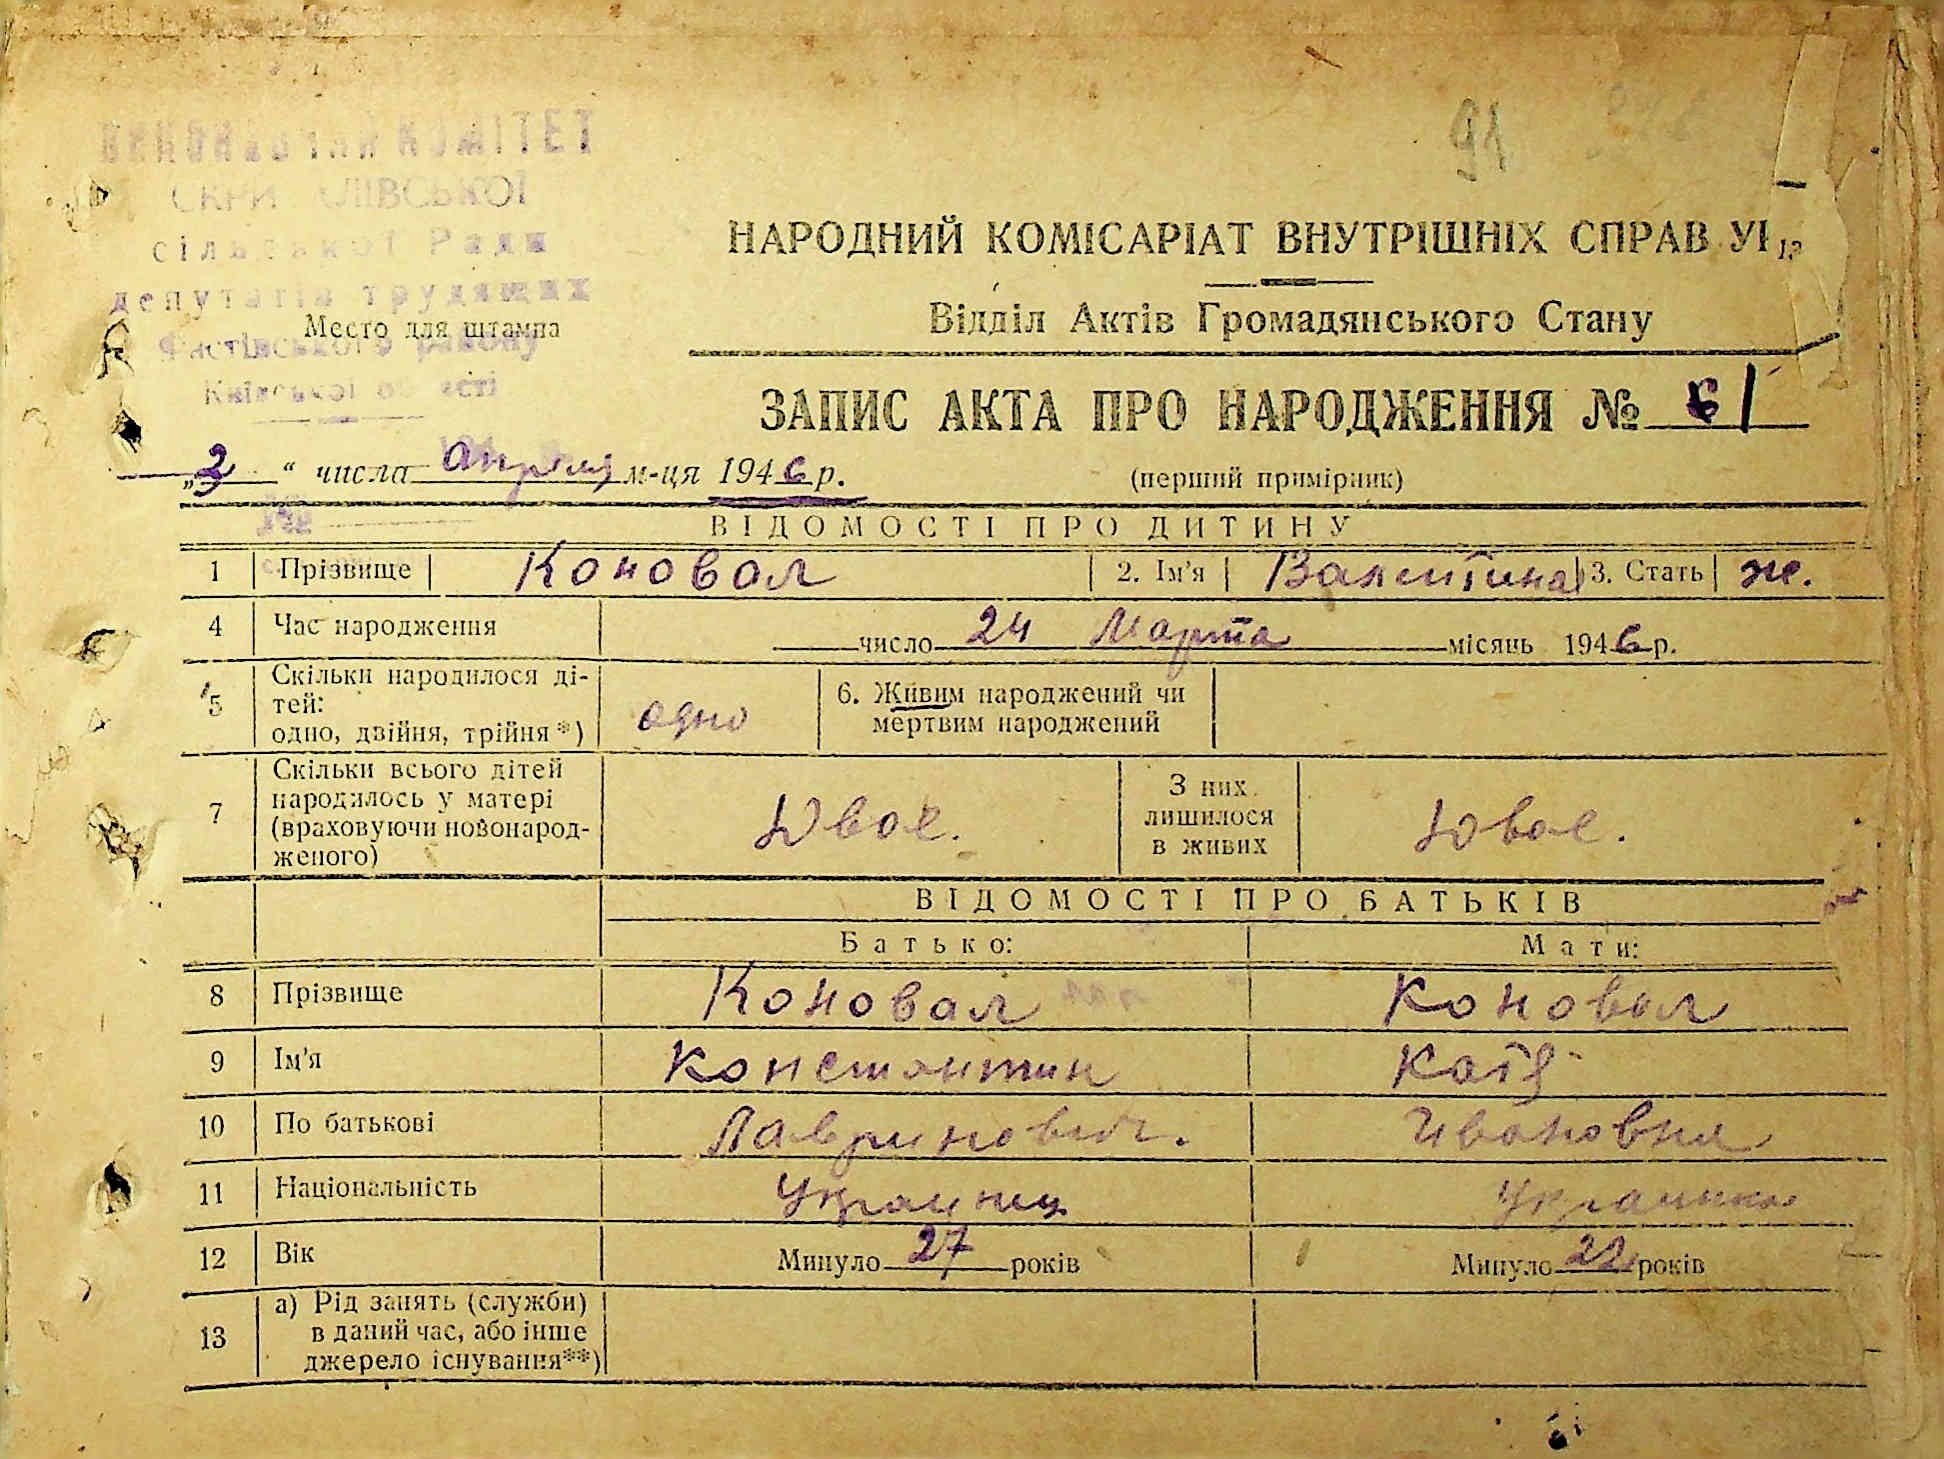 91
ВИКОНАВЧИЙ КОМІТЕТ
сільської Ради
депутатів трудящих
Фастівського району
Київської області
Место для штампа
НАРОДНИЙ КОМІСАРІАТ ВНУТРІШНІХ СПРАВ
Відділ Актів Громадянського Стану
ЗАПИС АКТА ПРО НАРОДЖЕННЯ № 61
„ “ числа апреля м-ця 1946 р. (перший примірник)
ВІДОМОСТІ ПРО ДИТИНУ
1 Прізвище Коновал 2. Ім'я Валентина 3. Стать ж.
4 Час народження число 24 Марта місяць 1946 р.
5 Скільки народилося ді-
тей:
одно, двійня, трійня*) одно 6. Живим народжений чи
мертвим народжений
7 Скільки всього дітей
народилось у матері
(враховуючи новонарод-
женого) Двое. З них
лишилося
в живих Двое.
ВІДОМОСТІ ПРО БАТЬКІВ
Батько: Мати:
8 Прізвище Коновал Коновал
9 Ім'я Константин Катя
10 По батькові Лавринович. Ивановна
11 Національність Украинец Украинка
12 Вік Минуло 27 років Минуло 22 років
13 а) Рід занять (служби)
в даний час, або інше
джерело існування**)